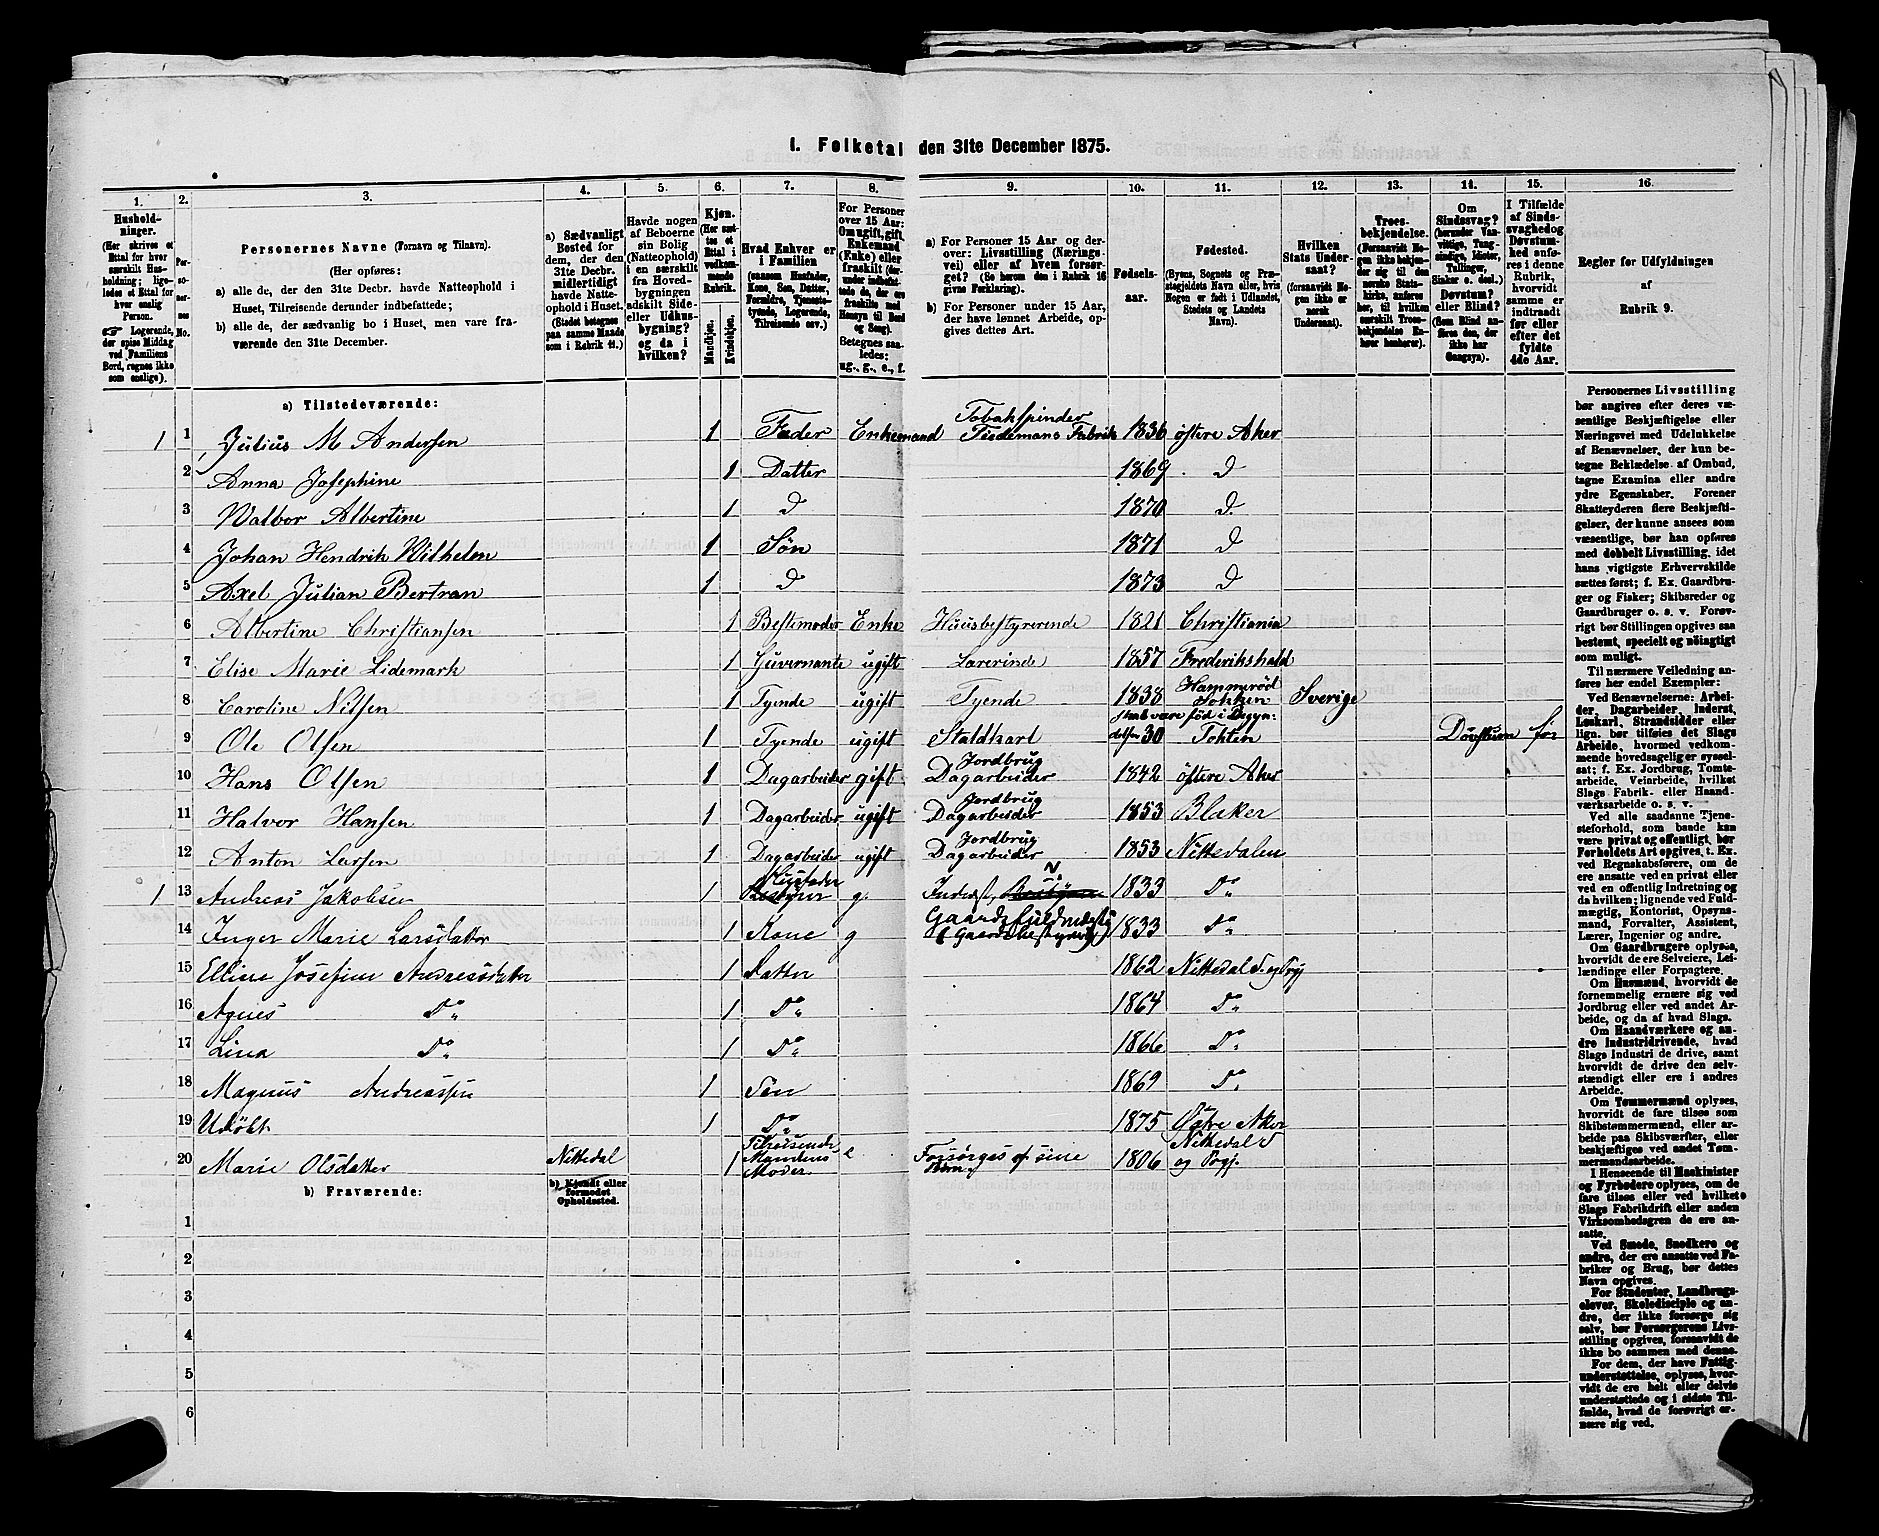 I. Folketal den 31te December 1875.
1. 2. 3. 4. 5. 6. 7. 8. 9. 10. 11. 12. 13. 14. 15. 16.
Hushold-
ninger.
(Her skrives et
Ettal for hver
særskilt Hus-
holdning; lige-
ledes et Ettal for
hver enslig
Person.
☞ Logerende,
der spise Middag
ved Familiens
Bord, regnes ikke
som enslige).
Per-
so-
ner-
nes
No.
Personernes Navne (Fornavn og Tilnavn).
(Her opføres:
a) alle de, der den 31te Decbr. havde Natteophold i
Huset, Tilreisende derunder indbefattede;
b) alle de, der sædvanlig bo i Huset, men vare fra-
værende den 31te December.
a) Sædvanligt
Bosted for
dem, der den
31te Decbr.
midlertidigt
havde Natte-
ophold i Huset.
(Stedet betegnes
paa samme Maade
som i Rubrik 11.)
Havde nogen
af Beboerne
sin Bolig
(Natteophold)
i en særskilt
fra Hoved-
bygningen
adskilt Side-
eller Udhus-
bygning?
og da i
hvilken?
Kjøn.
(Her sæt-
tes et
Ettal i
vedkom-
mende
Rubrik.
Mandkjøn.
Kvindekjøn.
Hvad Enhver er
i Familien
(saasom Husfader,
Kone, Søn, Datter,
Forældre, Tjeneste-
tyende, Logerende,
Tilreisende osv.)
For Personer
over 15 Aar:
Om ugift, gift,
Enkemand
(Enke) eller
fraskilt (der-
under indbefat-
tede de, der ere
fraskilte med
Hensyn til Bord
og Seng).
Betegnes saa-
ledes:
ug., g., e., f.
a) For Personer 15 Aar og der-
over: Livsstilling (Nærings-
vei) eller af hvem forsør-
get? (Se herom den i Rubrik 16
givne Forklaring).
b) For Personer under 15 Aar,
der have lønnet Arbeide, op-
gives dettes Art.
Fødsels-
aar.
Fødested.
(Byens, Sognets og Præ-
stegjeldets Navn eller, hvis
Nogen er født i Udlandet,
Stedets og Landets
Navn).
Hvilken
Stats Under-
saat?
(forsaavidt No-
gen ikke er
norsk
Undersaat).
Troes-
bekjendelse.
(Forsaavidt No-
gen ikke bekjen-
der sig til den
norske Stats-
kirke, anføres
her, til hvilken
særskilt Troes-
bekjendelse En-
hver henhører).
Om
Sindssvag?
(herunder Van-
vittige, Tung-
sindige, Idioter,
Tullinger,
Sinker o. desl.)
Døvstum?
eller Blind?
(Som Blind an-
føres den, der
ikke har
Gangsyn).
I Tilfælde
af Sinds-
svaghed og
Døvstum-
hed anfø-
res i denne
Rubrik,
hvorvidt
samme er
indtraadt
før eller
efter det
fyldte
4de Aar.
Regler for Udfyldningen
af
Rubrik 9.
a) Tilstedeværende:
1 1 Julius M Andersen 1 Fader Enkemand Tobakspinder Tiedemans Fabrik 1836 østre Aker
2 Anna Josephine 1 Datter 1869 D
3 Walbor Albertine 1 D 1870 D
4 Johan Hendrik Wilhelm 1 Søn 1871 D
5 Axel Julian Bertran 1 D 1873 D
6 Albertine Christiansen 1 Bestemoder Enke Huusbestyrerende 1821 Christiania
7 Elise Marie Lidemark 1 Guvernante ugift Lærerinde 1857 Frederikshald
8 Caroline Nilsen 1 Tyende ugift Tyende 1838 Hammerød Sverige
9 Ole Olsen 1 Tyende ugift Staldkarl skal være fød i Begyndelsen 30 Tohten Døvstum før
10 Hans Olsen 1 Dagarbeider gift Jordbrug Dagarbeider 1842 østre Aker
11 Halvor Hansen 1 Dagarbeider ugift Jordbrug Dagarbeider 1853 Blaker
12 Anton Larsen 1 Dagarbeider ugift Jordbrug Dagarbeider 1853 Nittedalen
1 13 Andreas Jakobsen 1 Husfader g. Inderst, 1833 Do
14 Inger Marie Larsdatter 1 Kone g 1833 Do
15 Elline Josefine Andreasdatter 1 Datter 1862 Nittedal S. og Prgj
16 Agnes Do 1 Do 1864 Do
17 Lina Do 1 Do 1866 Do
18 Magnus Andreassen 1 Søn 1869 Do
19 Udøbt 1 Do 1875 Østre Aker
20 Marie Olsdatter Nittedal 1 Tilreisende Mandens Moder e Forsørges af sine Børn 1806 Nittedal S og Prgj.
b) Fraværende:
b) Kjendt eller
formodet
Opholdssted.
1
2
3
4
5
6
Personernes Livsstilling
bør angives efter deres væ-
sentlige Beskjæftigelse eller
Næringsvei med Udelukkelse
af Benævnelser, der kun be-
tegne Beklædelse af Ombud,
tagne Examina eller andre
ydre Egenskaber. Forener
Skatteyderen flere Beskjæfti-
gelser, der kunne ansees som
væsentlige, bør han opføres
med dobbelt Livsstilling, idet
hans vigtigste Erhvervskilde
sættes først; f. Ex. Gaardbru-
ger og Fisker; Skibsreder og
Gaardbruger o. s. v. Forøv-
rigt bør Stillingen opgives saa
bestemt, specielt og nøiagtigt
som muligt.
Til nærmere Veiledning an-
føres her endel Exempler:
Ved Benævnelserne: Arbei-
der, Dagarbeider, Inderst,
Løskarl, Strandsidder eller
lign. bør tilføies det Slags
Arbeide, hvormed vedkom-
mende hovedsagelig er syssel-
sat; f. Ex. Jordbrug, Tomte-
arbeide, Veiarbeide, hvilket
Slags Fabrik- eller Haand-
værksarbeide o. s. v.
Ved alle saadanne Tjene-
steforhold, som baade kan
være privat og offentligt, bør
Forholdets Art opgives, t. Ex.
ved Regnskabsførere, om de
ere ansatte ved en privat eller
ved en offentlig Indretning og
da hvilken; lignende ved Fuld-
mægtig, Kontorist, Opsyns-
mand, Forvalter, Assistent,
Lærer, Ingeniør og andre.
Om Gaardbrugere oplyses,
hvorvidt de ere Selveiere, Lei-
lændinge eller Forpagtere.
Om Husmænd, hvorvidt de
fornemmelig ernære sig ved
Jordbrug eller ved andet Ar-
beide, og da af hvad Slags.
Om Haandværkere og an-
dre Industridrivende, hvad
Slags Industri de drive, samt
hvorvidt de drive den selv-
stændigt eller ere i andres
Arbeide.
Om Tømmermænd oplyses,
hvorvidt de fare tilsøs som
Skibstømmermænd, eller ar-
beide paa Skibsværfter, eller
beskjæftiges ved andet Tøm-
mermandsarbeide.
I Henseende til Maskinister
og Fyrbødere oplyses, om de
fare tilsøs eller ved hvilket
Slags Fabrikdrift eller anden
Virksomhedsgren de ere an-
satte.
Ved Smede, Snedkere og
andre, der ere ansatte ved Fa-
briker og Brug, bør dettes
Navn opgives.
For Studenter, Landbrugs-
elever, Skoledisciple og an-
dre, der ikke forsørge sig
selv, bør Forsørgerens Livs-
stilling opgives, forsaavidt de
ikke bo sammen med denne.
For dem, der have Fattig-
understøttelse, oplyses, hvor-
vidt de ere helt eller delvis
understøttede og i sidste Til-
fælde, hvad de forøvrigt er-
nære sig ved.